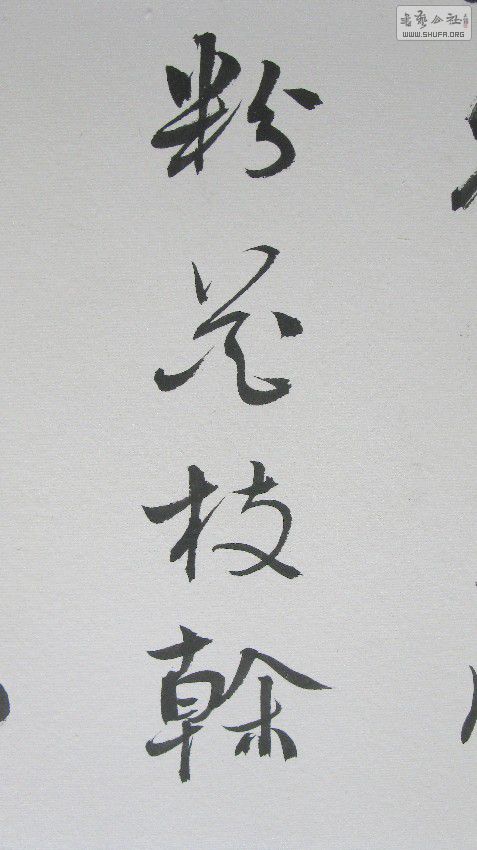 粉花枝榦
書藝公社
WWW.SHUFA.ORG